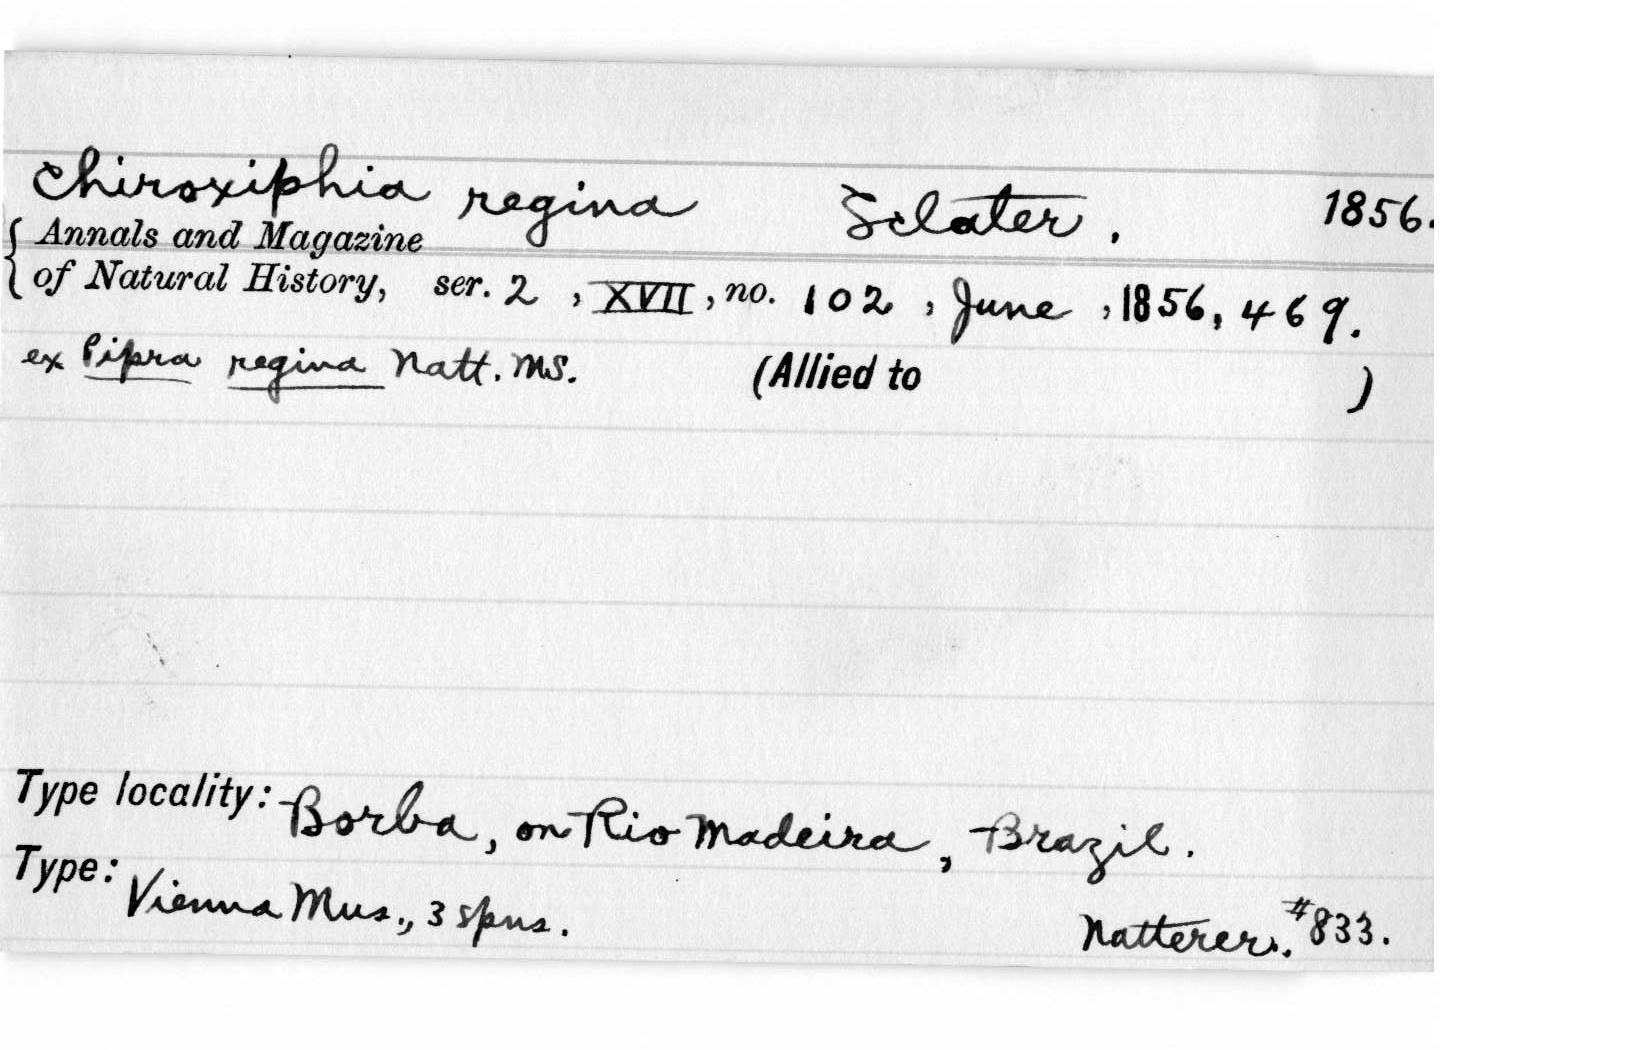 Chiroxiphia regina Sclater. 1856.
{ Annals and Magazine
of Natural History, ser. 2, XVII, no. 102, June, 1856, 469.
ex Pipra regina Natt. MS. (Allied to )
Type locality: Borba, on Rio Madeira, Brazil.
Type: Vienna Mus., 3 spns. Natterer. #833.